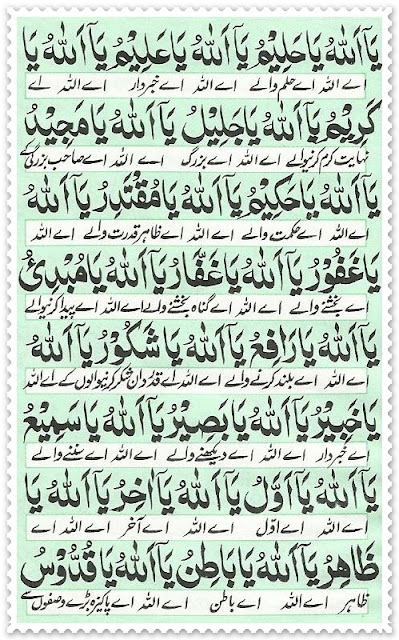 يَآ اَللهُ يَا حَلِيْمُ يَآ اَللهُ يَا عَلِيْمُ يَآ اَللهُ يَا
اے اللہ اے حلم والے اے اللہ اے خبردار اے اللہ اے
كَرِيْمُ يَآ اَللهُ يَا جَلِيْلُ يَآ اَللهُ يَا مَجِيْدُ
نہایت کرم کرنیوالے اے اللہ اے بزرگ اے اللہ اے صاحب بزرگی کے
يَآ اَللهُ يَا حَكِيْمُ يَآ اَللهُ يَا مُقْتَدِرُ يَآ اَللهُ
اے اللہ اے حکمت والے اے اللہ اے ظاہر قدرت والے اے اللہ
يَا غَفُوْرُ يَآ اَللهُ يَا غَفَّارُ يَآ اَللهُ يَا مُبْدِئُ
اے بخشنے والے اے اللہ اے گناہ بخشنے والے اے اللہ اے پیدا کرنیوالے
يَآ اَللهُ يَا رَافِعُ يَآ اَللهُ يَا شَكُوْرُ يَآ اَللهُ
اے اللہ اے بلند کرنے والے اے اللہ اے قدردان شکر کرنیوالوں کے اے اللہ
يَا خَبِيْرُ يَآ اَللهُ يَا بَصِيْرُ يَآ اَللهُ يَا سَمِيْعُ
اے خبردار اے اللہ اے دیکھنے والے اے اللہ اے سننے والے
يَآ اَللهُ يَآ اَوَّلُ يَآ اَللهُ يَآ اٰخِرُ يَآ اَللهُ يَا
اے اللہ اے اوّل اے اللہ اے آخر اے اللہ اے
ظَاهِرُ يَآ اَللهُ يَا بَاطِنُ يَآ اَللهُ يَا قُدُّوْسُ
ظاہر اے اللہ اے باطن اے اللہ اے پاکیزہ بڑے وصفوں سے